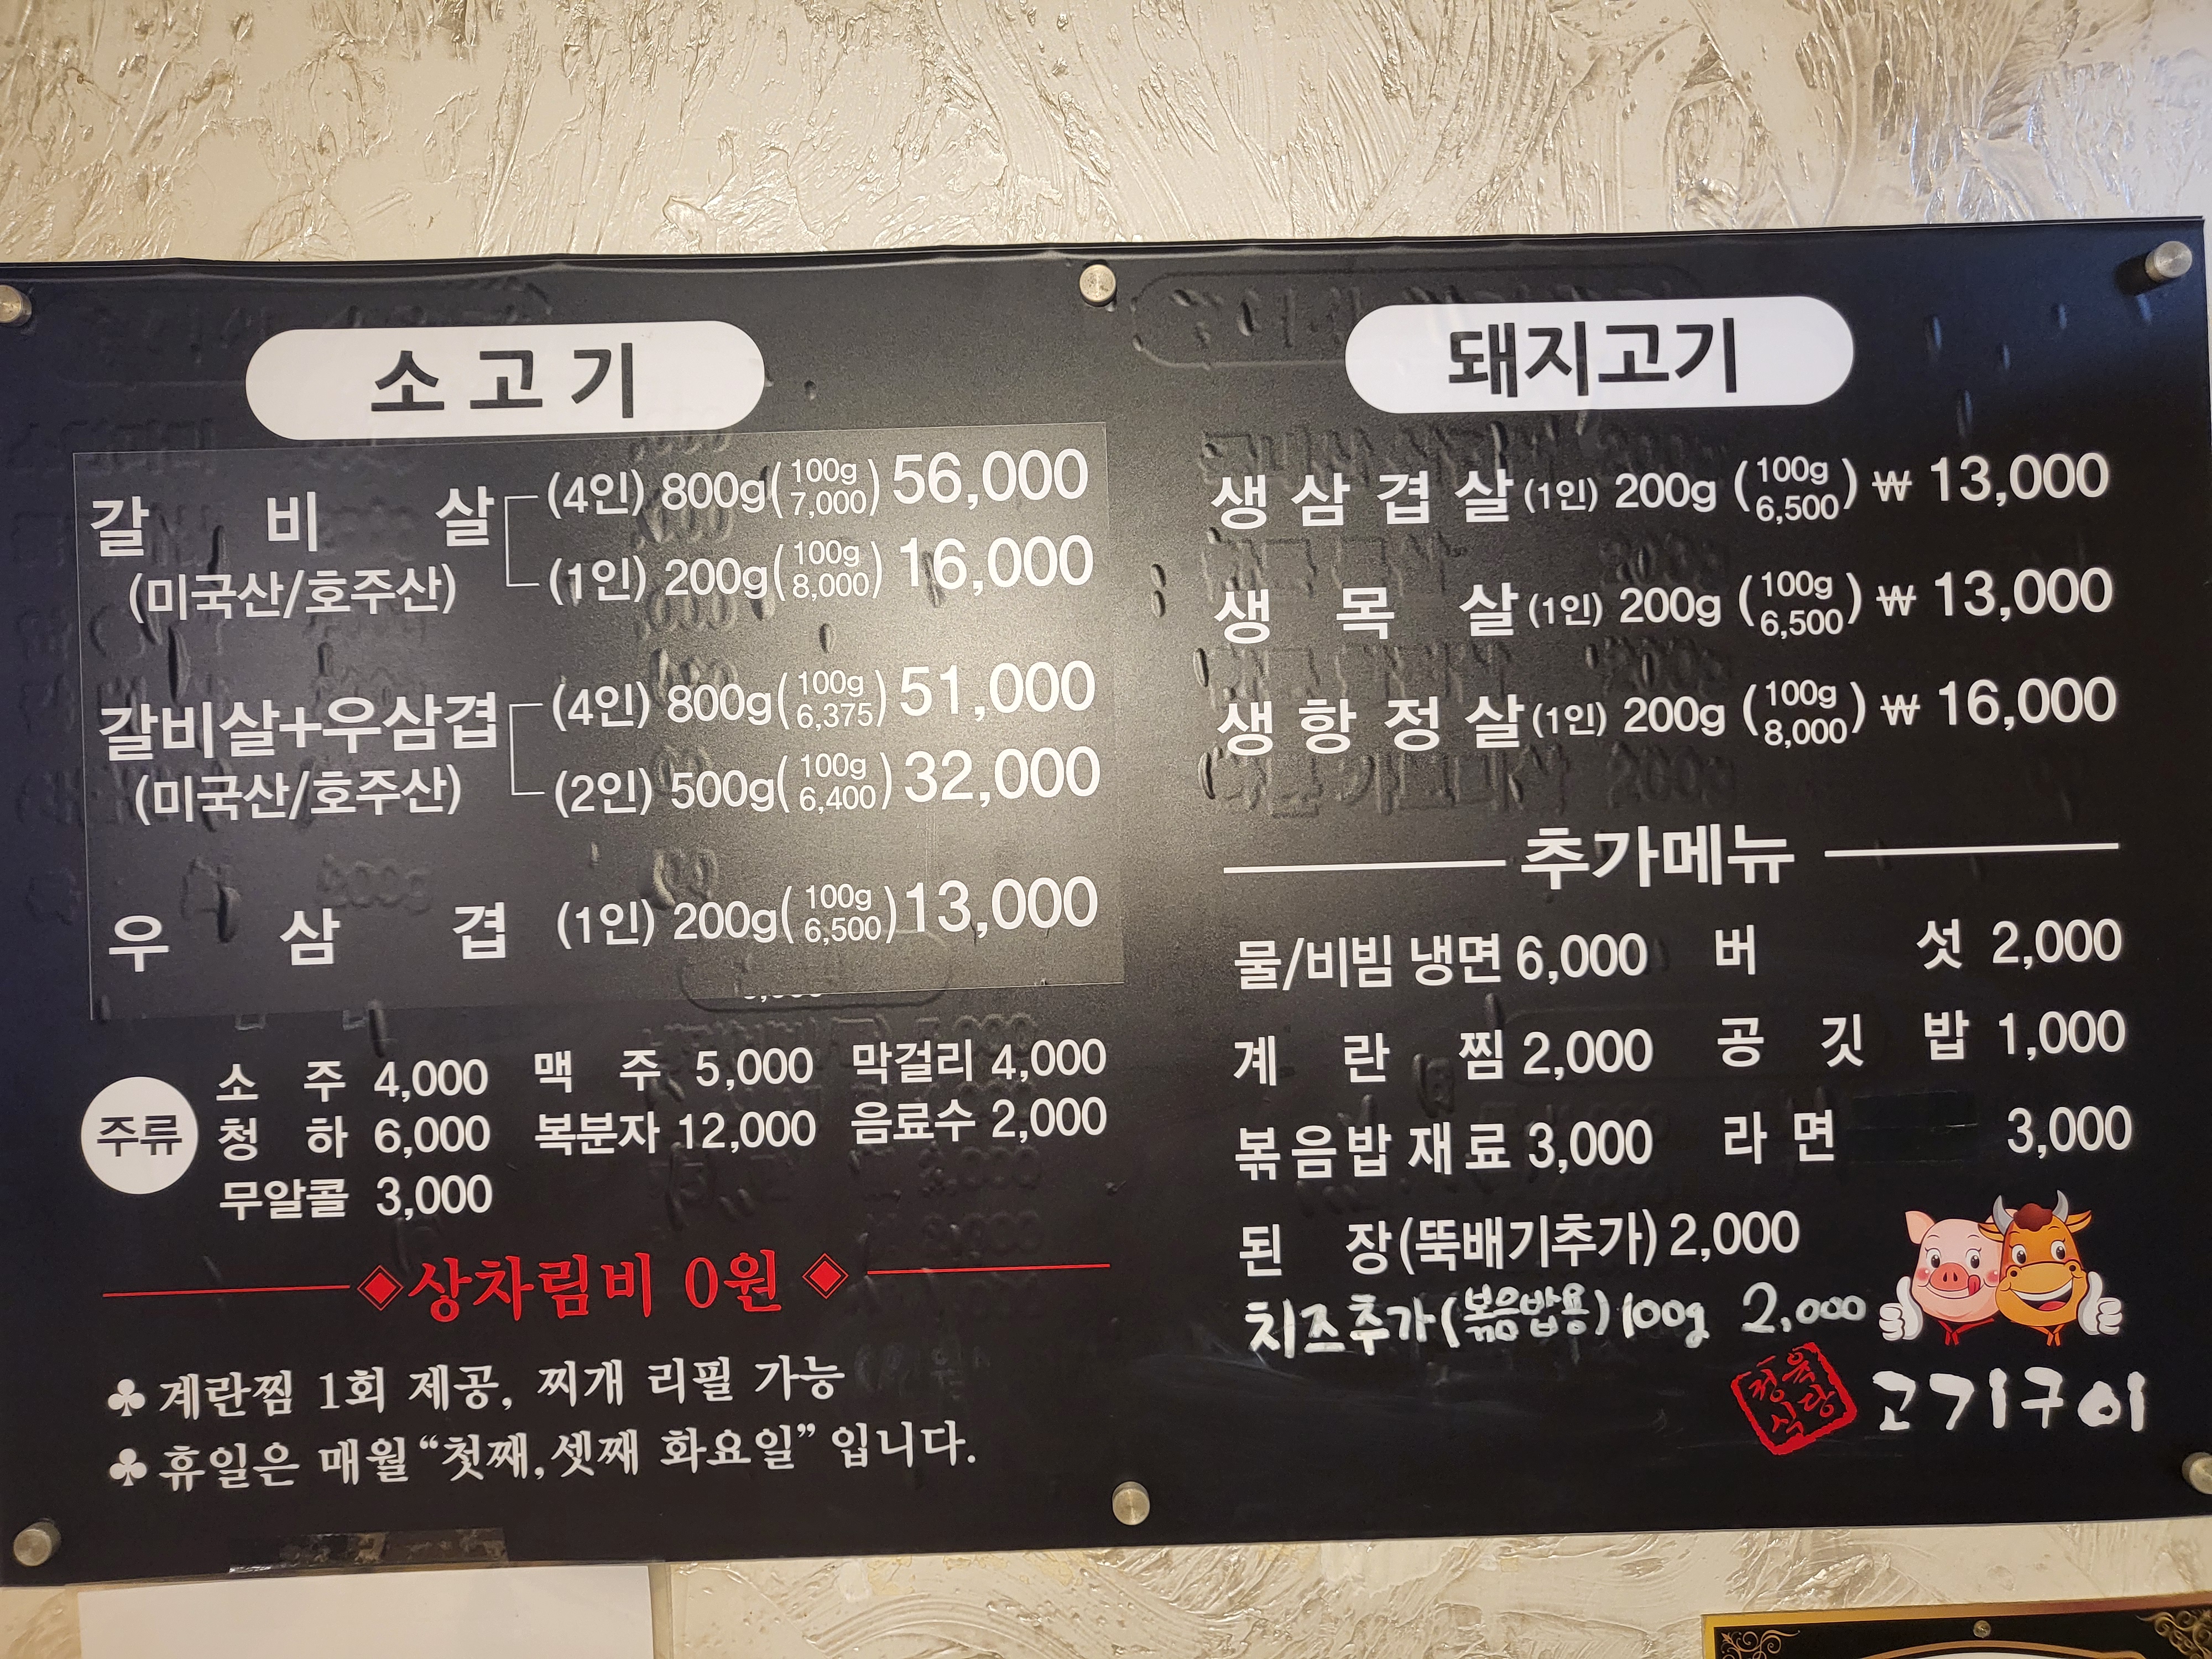 소고기
갈비살 (4인) 800g(100g 7,000) 56,000
(미국산/호주산) (1인) 200g(100g 8,000) 16,000
갈비살+우삼겹 (4인) 800g(100g 6,375) 51,000
(미국산/호주산) (2인) 500g(100g 6,400) 32,000
우삼겹 (1인) 200g(100g 6,500) 13,000
주류
소주 4,000 맥주 5,000 막걸리 4,000
청하 6,000 복분자 12,000 음료수 2,000
무알콜 3,000
◈상차림비 0원◈
♣계란찜 1회 제공, 찌개 리필 가능
♣휴일은 매월 “첫째,셋째 화요일” 입니다.
돼지고기
생삼겹살(1인) 200g (100g 6,500) ₩ 13,000
생목살(1인) 200g (100g 6,500) ₩ 13,000
생항정살(1인) 200g (100g 8,000) ₩ 16,000
추가메뉴
물/비빔 냉면 6,000 버섯 2,000
계란찜 2,000 공깃밥 1,000
볶음밥재료 3,000 라면 3,000
된장(뚝배기추가) 2,000
치즈추가(볶음밥용) 100g 2,000
정육식당 고기구이